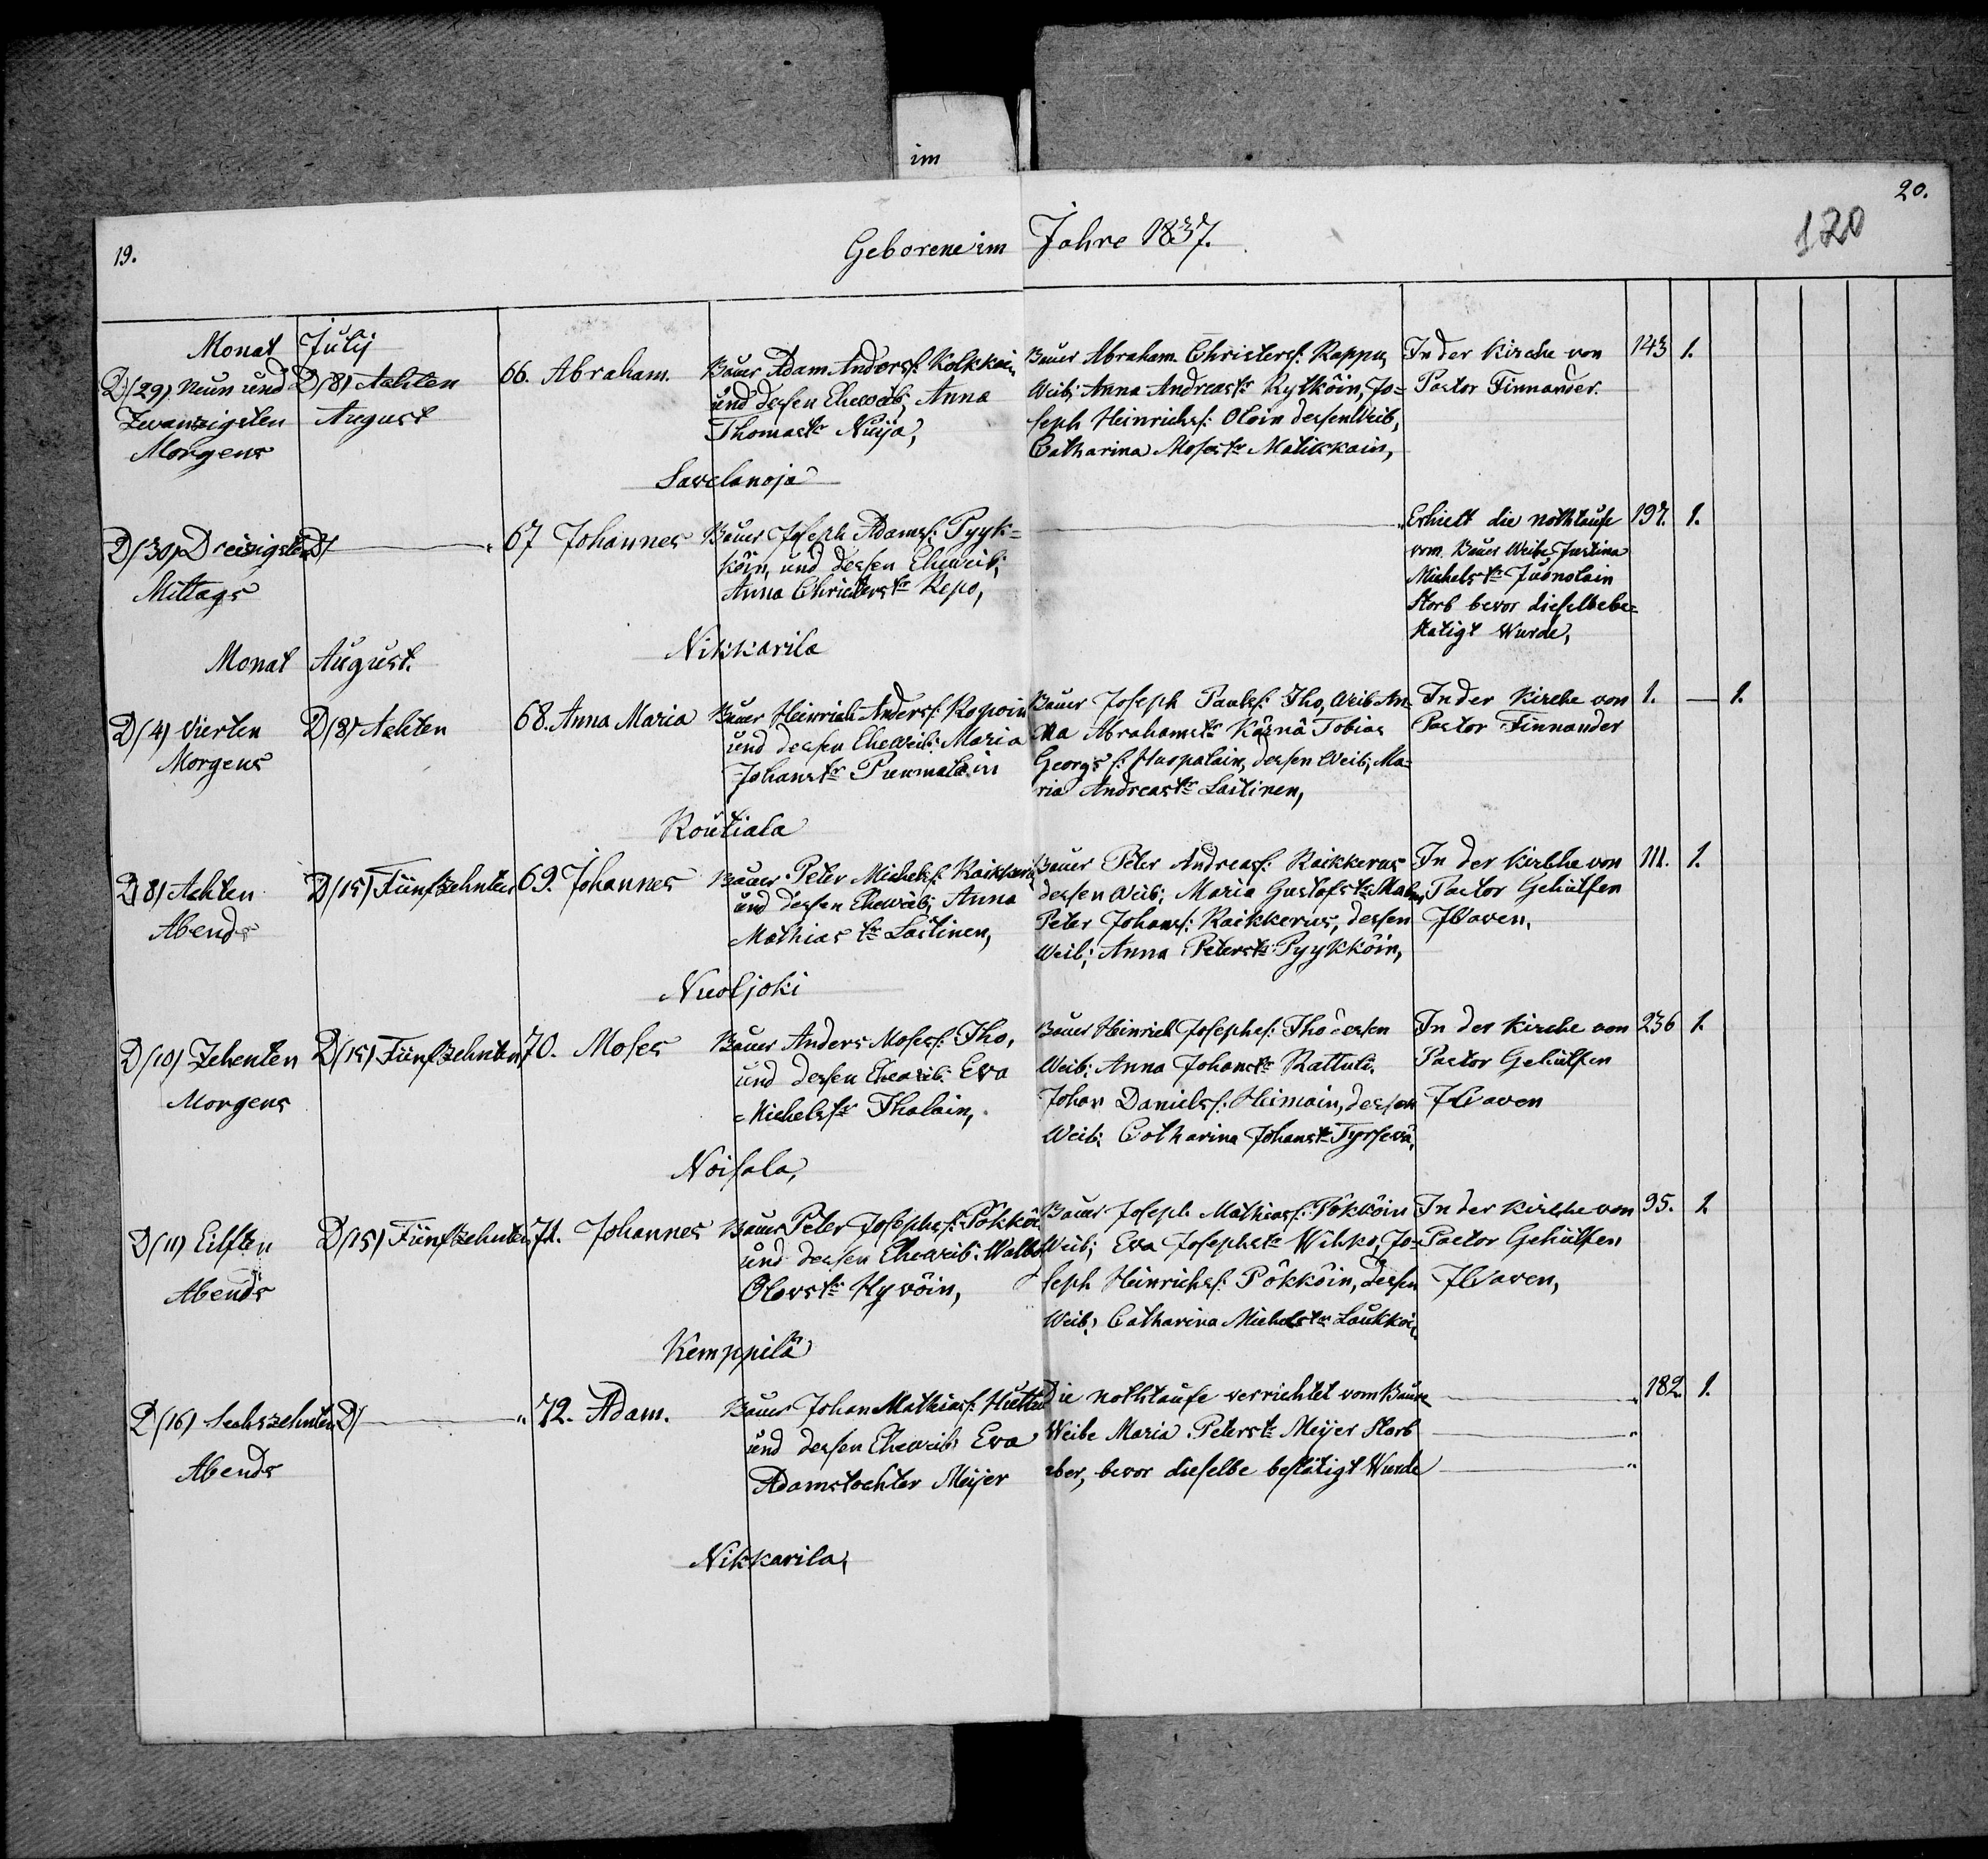 im
19.
Geborene im Jahre 1837.
20.
120
Monat July
D/(29) Neun und
Zwanzigsten
Morgens
D/(8) Achten
August
66. Abraham.
Bauer Adam Andersf: Kolkkoin
und dessen Eheweib; Anna
Thomastr Nuija,
Bauer Abraham Christersf: Rappu,
Weib; Anna Andreastr Rytköin, Jo-
seph Heinrichsf: Oloin dessen Weib,
Catharina Mosestr Matikkain,
In der Kirche von
Pastor Finnander.
143 1.
Savelanoja
D/(30) Dreisigsten
Mittags
D/ "
67 Johannes
Bauer Joseph Adamsf: Pyyk-
köin, und dessen Eheweib;
Anna Christerstr Repo,
"
Erhielt die nothtaufe
vom Bauer Weibe Justina
Michelstr Juonolain
Starb bevor dieselbe be-
statigt Wurde,
197. 1.
Nikkarila
Monat August.
D/(4) Vierten
Morgens
D/(8) Achten
68. Anna Maria
Bauer Heinrich Andersf: Ropoin
und dessen Eheweib: Maria
Johanstr Puumalain
Bauer Joseph Paulsf: Iho, Weib An-
na Abrahamstr Kärnä Tobias
Georgs f: Haapalain, dessen Weib; Ma-
ria Andreastr Lastinen,
In der Kirche von
Pastor Finnander
1. — 1.
Routiala
D/(8) Achten
Abends
D/(15) Fünfzehnten
69. Johannes
Bauer Peter Michelsf: Raikkerus
und dessen Eheweib; Anna
Mathias tr Lastinen,
Bauer Peter Andreasf: Raikkerus
dessen Weib; Maria Gustafstr
Peter Johansf: Raikkerus, dessen
Weib; Anna Peterstr Pyykköin,
In der Kirche von
Pastor Gehülfen
111. 1.
Nuoljoki
D/(10) Zehenten
Morgens
D/(15) Fünfzehnten
70. Moses
Bauer Anders Mosesf: Iho,
und dessen Eheweib: Eva
Michelstr Ihalain,
Bauer Heinrich Josephsf: Iho dessen
Weib: Anna Johanstr Rattuli.
Johan Danielsf: Heimain, dessen
Weib: Catharina Johanstr
In der Kirche von
Pastor Gehülfen
236 1.
Noisala,
D/(11) Eilften
Abends
D/(15) Fünfzehnten
71. Johannes
Bauer Peter Josephsf: Pökköi
und dessen Eheweib: Walb
Olovstr Hyvöin,
Bauer Joseph Mathiasf: Pökköin
Weib; Eva Josephstr Wihko, Jo-
seph Heinrichsf: Pökköin, dessen
Weib; Catharina Michelstr Laukkoi
In der Kirche von
Pastor Gehülfen
95. 1
Kemppilä
D/(16) Sechszehnten
Abends
D/ "
72. Adam.
Bauer Johan Mathiasf: Huttu
und dessen Eheweib: Eva
Adamstochter Meijer
Die nothtaufe verrichtet vom Baure "
Weibe Maria Peterstr Meijer Starb "
aber, bevor dieselbe bestätigt Wurde "
182. 1.
Nikkarila,